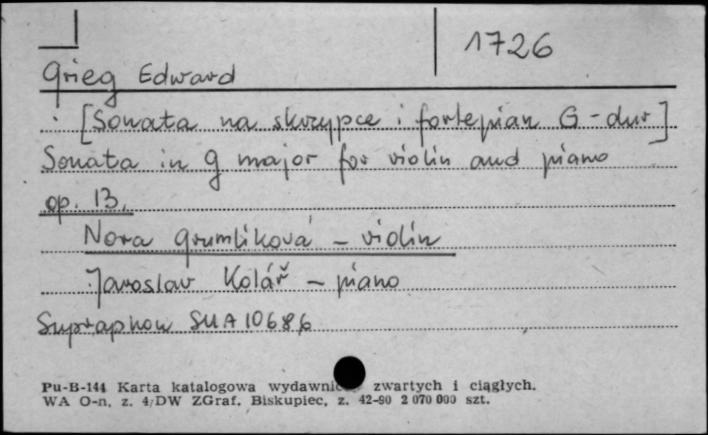 1726
Grieg Edward
[Sonata na skrzypce i fortepian G-dur]
Sonata in g major for violin and piano
op. 13.
Nora Grumlíková - violin
Jaroslav Kolář - piano
Supraphon SUA 10686
Pu-B-144 Karta katalogowa zwartych i ciągłych.
WA O-n, z. 4/DW ZGraf. Biskupiec, z. 42-90 2 070 000 szt.